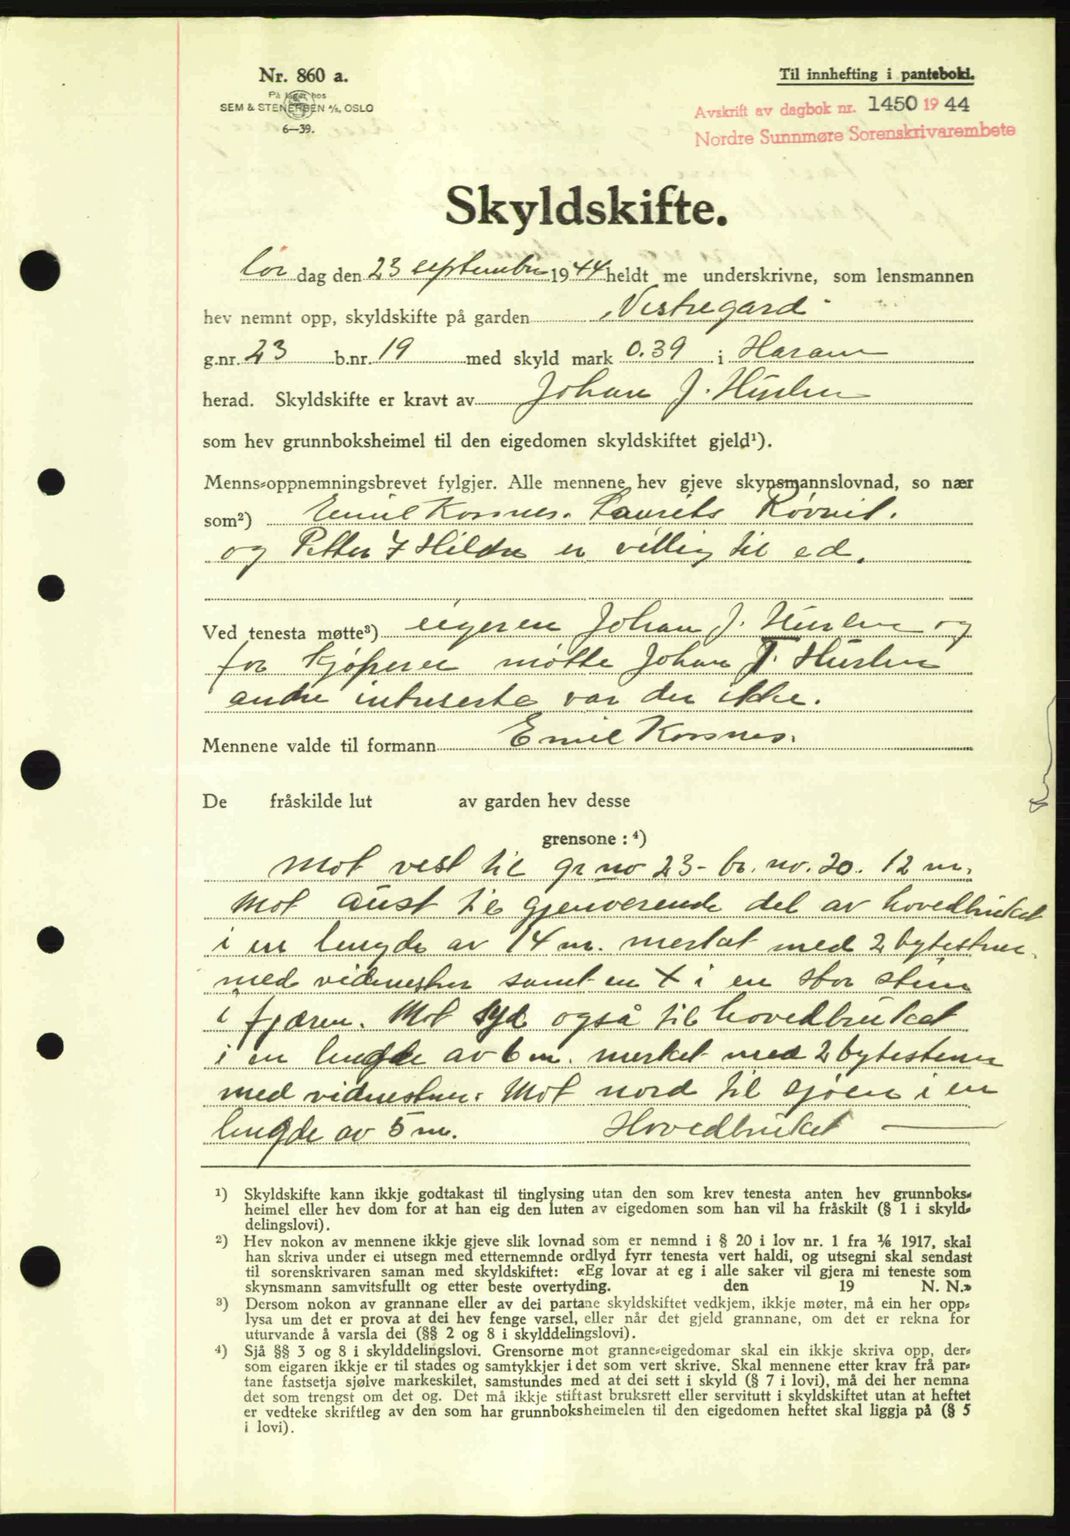 Nr. 860 a.
På lager hos
SEM & STENERSEN A/S, OSLO
6—39.
Til innhefting i pantebok.
Avskrift av dagbok nr. 1450 19 44
Nordre Sunnmøre Sorenskrivarembete
Skyldskifte.
lør dag den 23 september 1944 heldt me underskrivne, som lensmannen
hev nemnt opp, skyldskifte på garden Vestregard
g.nr. 23 b.nr. 19 med skyld mark 0.39 i Haram
herad. Skyldskifte er kravt av Johan J. Huslen
som hev grunnboksheimel til den eigedomen skyldskiftet gjeld¹).
Menns-oppnemningsbrevet fylgjer. Alle mennene hev gjeve skynsmannslovnad, so nær
som²) Emil Korsnes. Laurits Røvik.
og Petter I Hildre er villig til ed.
Ved tenesta møtte³) eigeren Johan J. Huslen og
for kjøperen møtte Johan T. Huslen
andre intreserte var der ikke.
Mennene valde til formann Emil Korsnes.
De fråskilde lut av garden hev desse
grensone: ⁴)
Mot vest til gr no 23 - br. no. 20. 12 m.
Mot aust til gjenværende del av hovedbruket
i en lengde av 14 m. merket med 2 bytestener
med vidnesten samt en X i en stor sten
i fjæren. Mot syd også til hovedbruket
i en lengde av 6 m. merket med 2 bytestener
med vidnestener. Mot nord til sjøen i en
lengde av 5 m. Hovedbruket —
¹) Skyldskifte kann ikkje godtakast til tinglysing utan den som krev tenesta anten hev grunnboks-
heimel eller hev dom for at han eig den luten av eigedomen som han vil ha fråskilt (§ 1 i skyld-
delingslovi).
²) Hev nokon av mennene ikkje gjeve slik lovnad som er nemnd i § 20 i lov nr. 1 fra ⅙ 1917, skal
han skriva under ei utsegn med etternemnde ordlyd fyrr tenesta vert haldi, og utsegni skal sendast
til sorenskrivaren saman med skyldskiftet: «Eg lovar at eg i alle saker vil gjera mi teneste som
skynsmann samvitsfullt og etter beste overtyding. den 19 N. N.»
³) Dersom nokon av grannane eller av dei partane skyldskiftet vedkjem, ikkje møter, må ein her opp-
lysa um det er prova at dei hev fenge varsel, eller når det gjeld grannane, om det er rekna for
uturvande å varsla dei (§§ 2 og 8 i skylddelingslovi).
⁴) Sjå §§ 3 og 8 i skylddelingslovi. Grensorne mot granne-eigedomar skal ein ikkje skriva opp, der-
som eigaren ikkje er til stades og samtykkjer i det som vert skrive. Skal mennene etter krav frå par-
tane fastsetja sjølve markeskilet, samstundes med at dei sett i skyld (§ 7 i lovi), må dei her nemna
det som trengst om det og. Det må ikkje stiftast bruksrett eller servitutt i skyldskiftet utan at heftet
er vedteke skriftleg av den som har grunnboksheimelen til den eigedomen heftet skal liggja på (§ 5
i lovi).